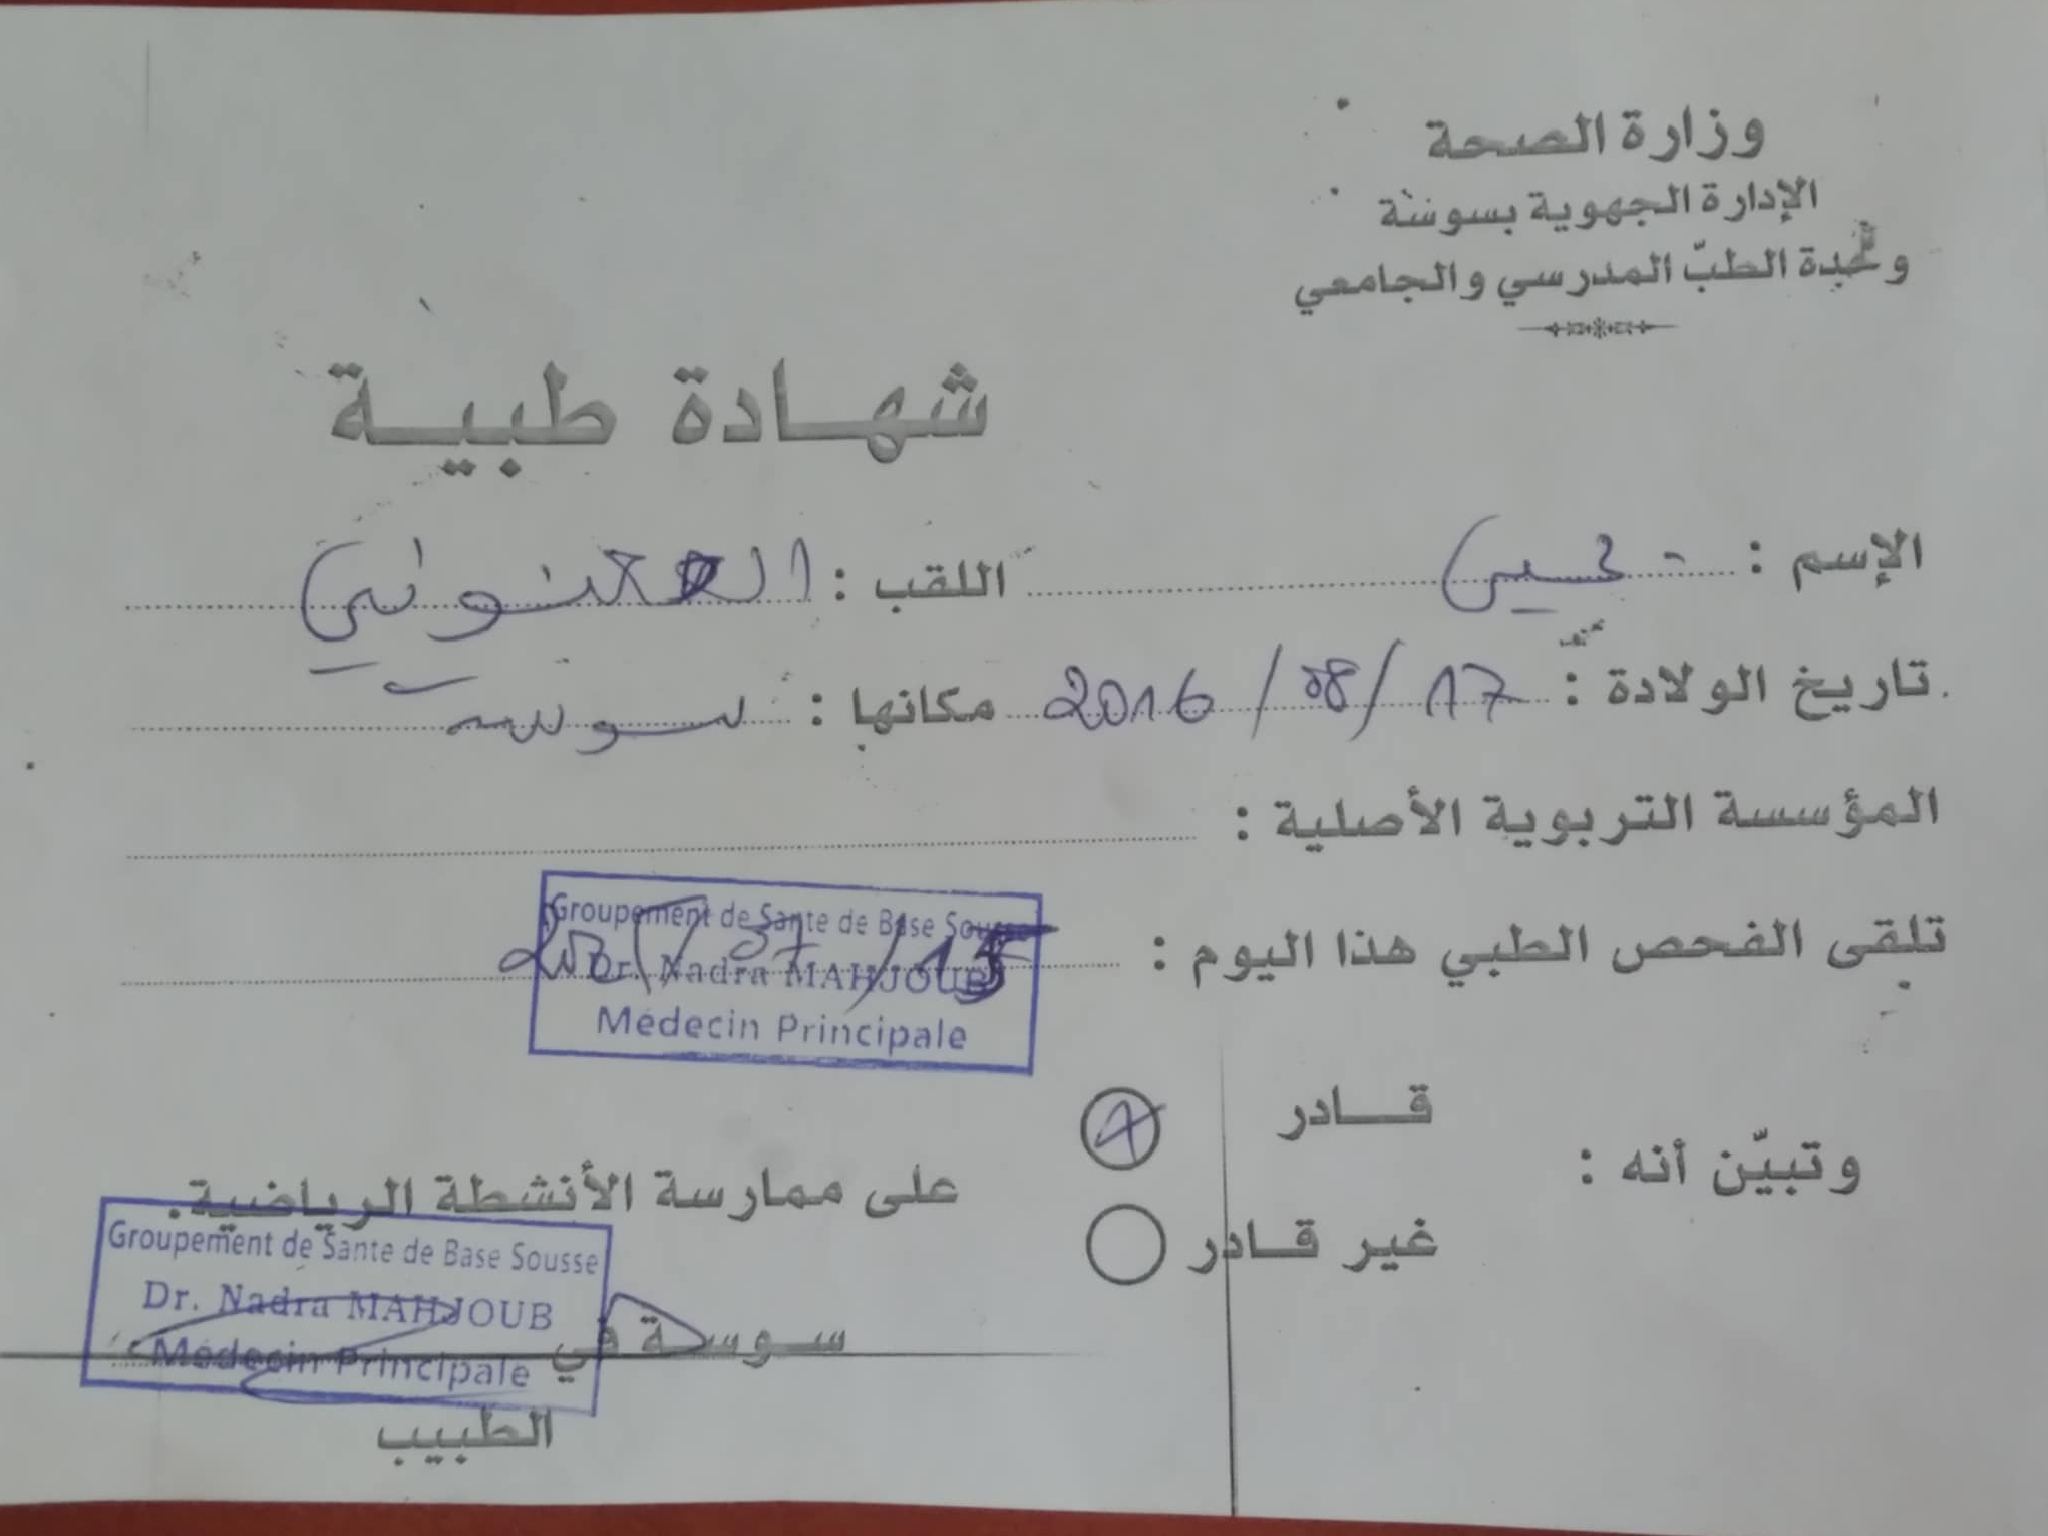 وزارة الصحة
الإدارة الجهوية بسوسة
وحدة الطبّ المدرسي والجامعي
شهادة طبية
الإسم : اللقب :
تاريخ الولادة : 17 / 08 / 2016 مكانها : سوسة
المؤسسة التربوية الأصلية :
تلقى الفحص الطبي هذا اليوم :
Groupement de Sante de Base Sousse
Dr. Nadra MAHJOUB
Médecin Principale
وتبيّن أنه :
قادر
غير قادر
على ممارسة الأنشطة الرياضية.
Groupement de Sante de Base Sousse
Dr. Nadra MAHJOUB
Médecin Principale
سوسة في
الطبيب